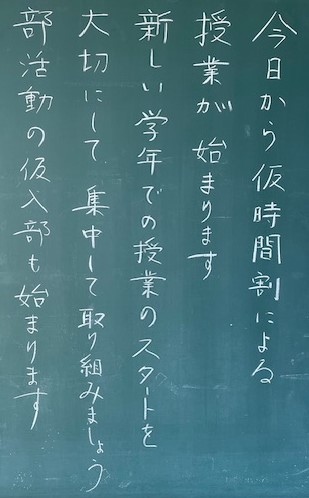 今日から仮時間割による
授業が始まります
新しい学年での授業のスタートを
大切にして集中して取り組みましょう
部活動の仮入部も始まります